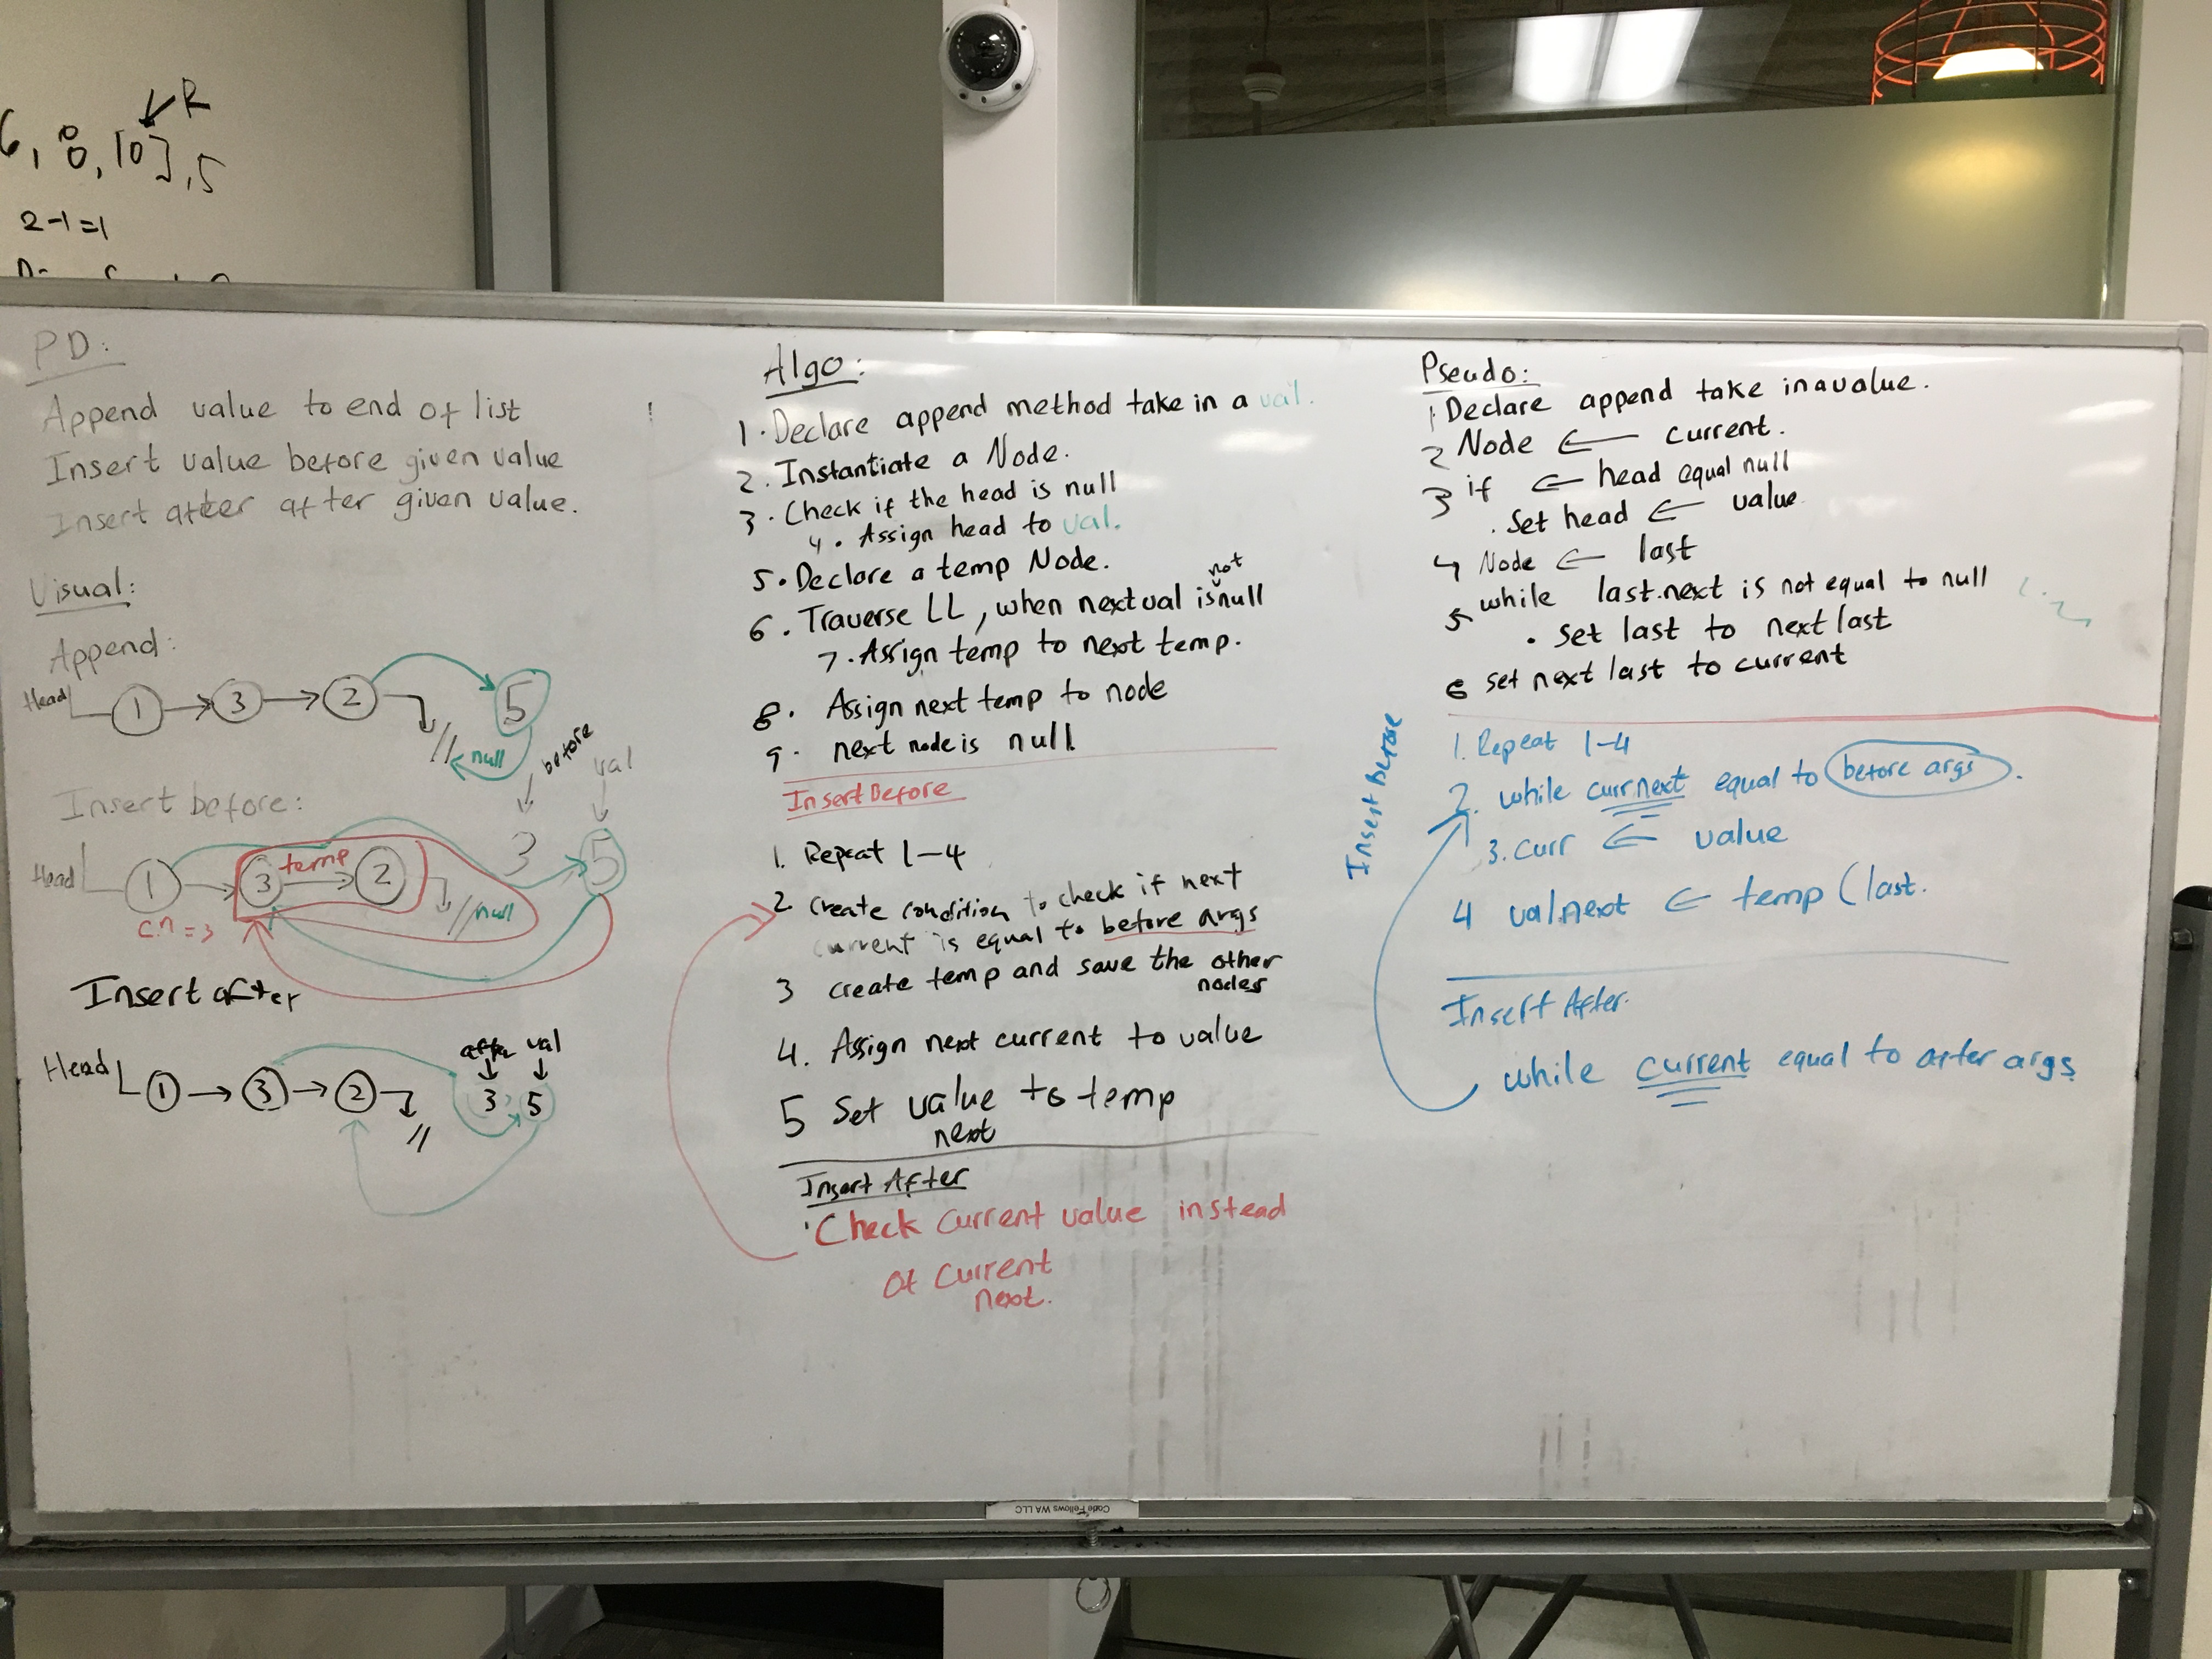 R
6, 8, 10], 5
2-1=1
PD:
Append value to end of list
Insert value before given value
Insert after after given value.
Visual:
Append:
Head 1 3 2 // 5
null
Insert before:
before val
3 5
Head 1 3 temp 2 // null
c.n = 3
Insert after
after val
Head 1 3 2 // 3 5
Algo:
1. Declare append method take in a val.
2. Instantiate a Node.
3. Check if the head is null
4. Assign head to val.
5. Declare a temp Node.
not
6. Traverse LL, when next val is null
7. Assign temp to next temp.
8. Assign next temp to node
9. next node is null
Insert Before
1. Repeat 1-4
2 create condition to check if next
current is equal to before args
3 create temp and save the other
nodes
4. Assign next current to value
5 Set value to temp
next
Insert After
Check current value instead
of current
next.
Pseudo:
1 Declare append take in a value.
2 Node ← current.
3 if ← head equal null
. Set head ← value
4 Node ← last
5 while last.next is not equal to null
. set last to next last
6 set next last to current
Insert Before
1. Repeat 1-4
2. while curr next equal to before args.
3. curr ← value
4 val.next ← temp (last.
Insert After.
while current equal to after args
Code Fellows WA LLC